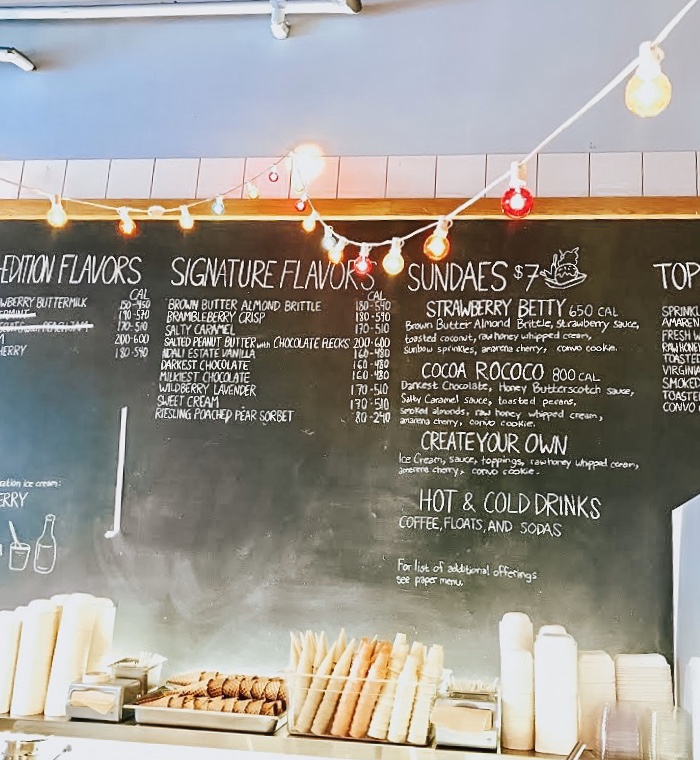 -EDITION FLAVORS
CAL
WBERRY BUTTERMILK 150-450
190-570
170-510
200-600
HERRY 180-540
ration ice cream:
ERRY
SIGNATURE FLAVORS
CAL
BROWN BUTTER ALMOND BRITTLE 180-590
BRAMBLEBERRY CRISP 180-590
SALTY CARAMEL 170-510
SALTED PEANUT BUTTER with CHOCOLATE FLECKS 200-600
NDALI ESTATE VANILLA 160-480
DARKEST CHOCOLATE 160-480
MILKIEST CHOCOLATE 160-480
WILDBERRY LAVENDER 170-510
SWEET CREAM 170-510
RIESLING POACHED PEAR SORBET 80-240
SUNDAES $7
STRAWBERRY BETTY 650 CAL
Brown Butter Almond Brittle, Strawberry sauce,
toasted coconut, raw honey whipped cream,
sunbow sprinkles, amarena cherry, convo cookie.
COCOA ROCOCO 800 CAL
Darkest Chocolate, Honey Butterscotch sauce,
Salty Caramel sauce, toasted pecans,
smoked almonds, raw honey whipped cream,
amarena cherry, convo cookie.
CREATE YOUR OWN
Ice Cream, sauce, toppings, raw honey whipped cream,
amarena cherry, convo cookie.
HOT & COLD DRINKS
COFFEE, FLOATS, AND SODAS
For list of additional offerings
see paper menu.
TOP
SPRINKL
AMAREN
FRESH W
RAW HONEY
TOASTE
VIRGINIA
SMOKE
TOASTE
CONVO